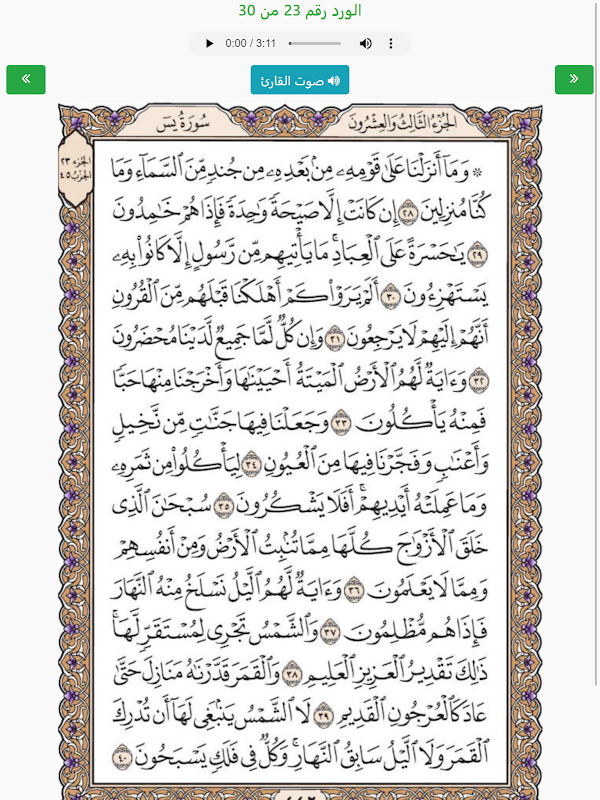 الورد رقم 23 من 30
0:00 / 3:11
«
صوت القارئ
»
الجزء الثالث والعشرون
سورة يس
الجزء ٢٣
الحزب ٤٥
۞ وَمَا أَنزَلْنَا عَلَىٰ قَوْمِهِۦ مِنۢ بَعْدِهِۦ مِن جُندٍ مِّنَ ٱلسَّمَآءِ وَمَا
كُنَّا مُنزِلِينَ ٢٨ إِن كَانَتْ إِلَّا صَيْحَةً وَٰحِدَةً فَإِذَا هُمْ خَٰمِدُونَ
٢٩ يَٰحَسْرَةً عَلَى ٱلْعِبَادِ ۚ مَا يَأْتِيهِم مِّن رَّسُولٍ إِلَّا كَانُوا۟ بِهِۦ
يَسْتَهْزِءُونَ ٣٠ أَلَمْ يَرَوْا۟ كَمْ أَهْلَكْنَا قَبْلَهُم مِّنَ ٱلْقُرُونِ
أَنَّهُمْ إِلَيْهِمْ لَا يَرْجِعُونَ ٣١ وَإِن كُلٌّ لَّمَّا جَمِيعٌ لَّدَيْنَا مُحْضَرُونَ
٣٢ وَءَايَةٌ لَّهُمُ ٱلْأَرْضُ ٱلْمَيْتَةُ أَحْيَيْنَٰهَا وَأَخْرَجْنَا مِنْهَا حَبًّا
فَمِنْهُ يَأْكُلُونَ ٣٣ وَجَعَلْنَا فِيهَا جَنَّٰتٍ مِّن نَّخِيلٍ
وَأَعْنَٰبٍ وَفَجَّرْنَا فِيهَا مِنَ ٱلْعُيُونِ ٣٤ لِيَأْكُلُوا۟ مِن ثَمَرِهِۦ
وَمَا عَمِلَتْهُ أَيْدِيهِمْ ۖ أَفَلَا يَشْكُرُونَ ٣٥ سُبْحَٰنَ ٱلَّذِى
خَلَقَ ٱلْأَزْوَٰجَ كُلَّهَا مِمَّا تُنۢبِتُ ٱلْأَرْضُ وَمِنْ أَنفُسِهِمْ
وَمِمَّا لَا يَعْلَمُونَ ٣٦ وَءَايَةٌ لَّهُمُ ٱلَّيْلُ نَسْلَخُ مِنْهُ ٱلنَّهَارَ
فَإِذَا هُم مُّظْلِمُونَ ٣٧ وَٱلشَّمْسُ تَجْرِى لِمُسْتَقَرٍّ لَّهَا ۚ
ذَٰلِكَ تَقْدِيرُ ٱلْعَزِيزِ ٱلْعَلِيمِ ٣٨ وَٱلْقَمَرَ قَدَّرْنَٰهُ مَنَازِلَ حَتَّىٰ
عَادَ كَٱلْعُرْجُونِ ٱلْقَدِيمِ ٣٩ لَا ٱلشَّمْسُ يَنۢبَغِى لَهَآ أَن تُدْرِكَ
ٱلْقَمَرَ وَلَا ٱلَّيْلُ سَابِقُ ٱلنَّهَارِ ۚ وَكُلٌّ فِى فَلَكٍ يَسْبَحُونَ ٤٠
٤٤٢